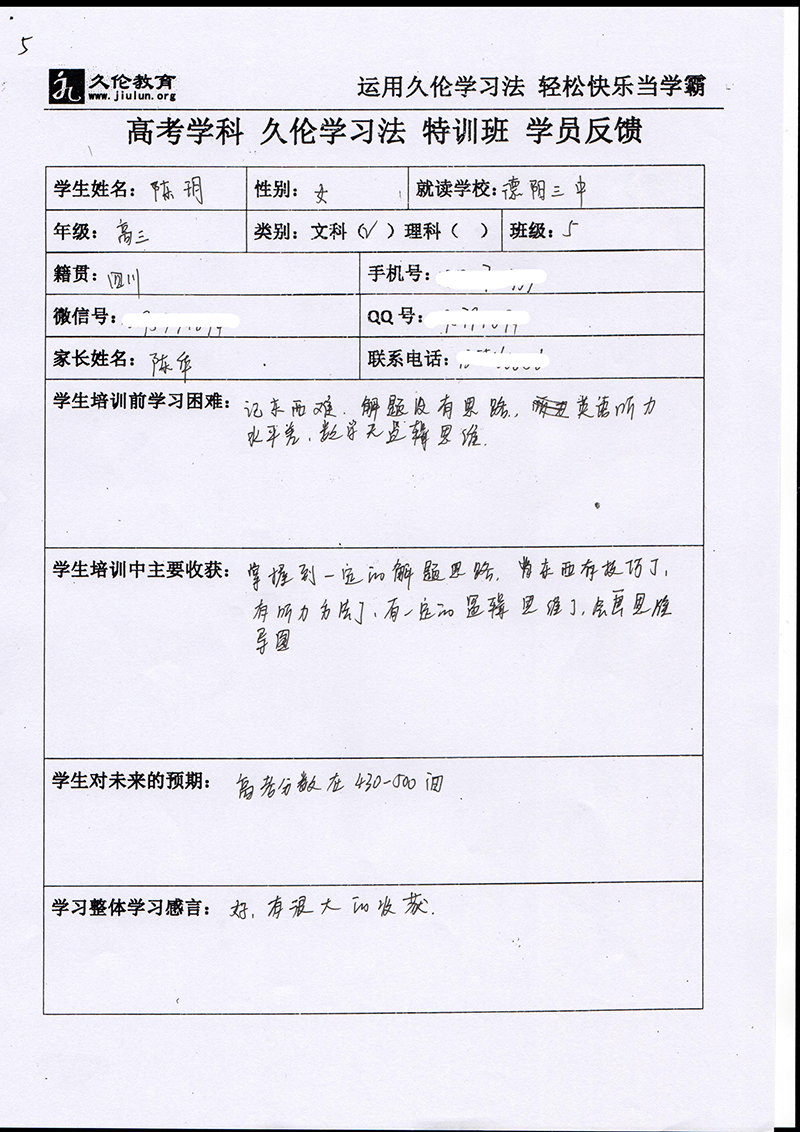 5
久伦教育 运用久伦学习法 轻松快乐当学霸
www.jiulun.org
高考学科 久伦学习法 特训班 学员反馈
学生姓名：陈玥 性别：女 就读学校：德阳三中
年级：高三 类别：文科（√）理科（ ） 班级：5
籍贯：四川 手机号：
微信号： QQ号：
家长姓名：陈华 联系电话：
学生培训前学习困难：记东西难、解题没有思路， 英语听力
水平差、数学无逻辑思维.
学生培训中主要收获：掌握到一定的解题思路, 背东西有技巧了,
有听力方法了、有一定的逻辑思维了、会画思维
导图
学生对未来的预期：高考分数在430-500间
学习整体学习感言：好, 有很大的收获.